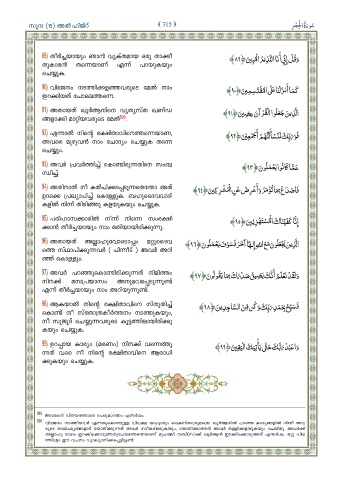 സൂറ (15) അൽ ഹിജ്ർ
( 315 )
89) തീർച്ചയായും ഞാൻ വ്യക്തമായ ഒരു താക്കീ
തുകാരൻ തന്നെയാണ് എന്ന് പറയുകയും
ചെയ്യുക.
وَقُلْ إِنِّي أَنَا النَّذِيرُ الْمُبِينُ ﴿٨٩﴾
90) വിഭജനം നടത്തിക്കളഞ്ഞവരുടെ മേൽ നാം
ഇറക്കിയത് പോലെത്തന്നെ.
كَمَا أَنزَلْنَا عَلَى الْمُقْتَسِمِينَ ﴿٩٠﴾
91) അതായത് ഖുർആനിനെ വ്യത്യസ്ത ഖണ്ഡ
ങ്ങളാക്കി മാറ്റിയവരുടെ മേൽ
الَّذِينَ جَعَلُوا الْقُرْآنَ عِضِينَ ﴿٩١﴾
92) എന്നാൽ നിന്റെ രക്ഷിതാവിനെത്തന്നെയാണ,
അവരെ മുഴുവൻ നാം ചോദ്യം ചെയ്യുക തന്നെ
ചെയ്യും.
فَوَرَبِّكَ لَنَسْأَلَنَّهُمْ أَجْمَعِينَ ﴿٩٢﴾
93) അവർ പ്രവർത്തിച്ച് കൊണ്ടിരുന്നതിനെ സംബ
ന്ധിച്ച്.
عَمَّا كَانُوا يَعْمَلُونَ ﴿٩٣﴾
94) അതിനാൽ നീ കൽപിക്കപ്പെടുന്നതെന്തോ അത്
ഉറക്കെ പ്രഖ്യാപിച്ച് കൊള്ളുക. ബഹുദൈവവാദി
കളിൽ നിന്ന് തിരിഞ്ഞു കളയുകയും ചെയ്യുക.
فَاصْدَعْ بِمَا تُؤْمَرُ وَأَعْرِضْ عَنِ الْمُشْرِكِينَ ﴿٩٤﴾
95) പരിഹാസക്കാരിൽ നിന്ന് നിന്നെ സംരക്ഷി
ക്കാൻ തീർച്ചയായും നാം മതിയായിരിക്കുന്നു.
إِنَّا كَفَيْنَاكَ الْمُسْتَهْزِئِينَ ﴿٩٥﴾
96) അതായത് അല്ലാഹുവോടൊപ്പം മറ്റുദൈവ
ത്തെ സ്ഥാപിക്കുന്നവർ ( പിന്നീട് ) അവർ അറി
ഞ്ഞ് കൊള്ളും.
الَّذِينَ يَجْعَلُونَ مَعَ اللَّهِ إِلَٰهًا آخَرَ فَسَوْفَ يَعْلَمُونَ ﴿٩٦﴾
97) അവർ പറഞ്ഞുകൊണ്ടിരിക്കുന്നത് നിമിത്തം
നിനക്ക് മനഃപ്രയാസം അനുഭവപ്പെടുന്നുണ്ട്
എന്ന് തീർച്ചയായും നാം അറിയുന്നുണ്ട്.
وَلَقَدْ نَعْلَمُ أَنَّكَ يَضِيقُ صَدْرُكَ بِمَا يَقُولُونَ ﴿٩٧﴾
98) ആകയാൽ നിന്റെ രക്ഷിതാവിനെ സ്തുതിച്ച്
കൊണ്ട് നീ സ്തോത്രകീർത്തനം നടത്തുകയും,
നീ സുജൂദ് ചെയ്യുന്നവരുടെ കൂട്ടത്തിലായിരിക്കു
കയും ചെയ്യുക.
فَسَبِّحْ بِحَمْدِ رَبِّكَ وَكُن مِّنَ السَّاجِدِينَ ﴿٩٨﴾
99) ഉറപ്പായ കാര്യം (മരണം) നിനക്ക് വന്നെത്തു
ന്നത് വരെ നീ നിന്റെ രക്ഷിതാവിനെ ആരാധി
ക്കുകയും ചെയ്യുക.
وَاعْبُدْ رَبَّكَ حَتَّىٰ يَأْتِيَكَ الْيَقِينُ ﴿٩٩﴾